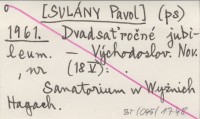 [SULÁNY Pavol] (ps)
1961. Dvadsaťročné jubi-
leum. – Východoslov. Nov.
, nr (18 V):
Sanatorium w Wyżnich
Hagach.